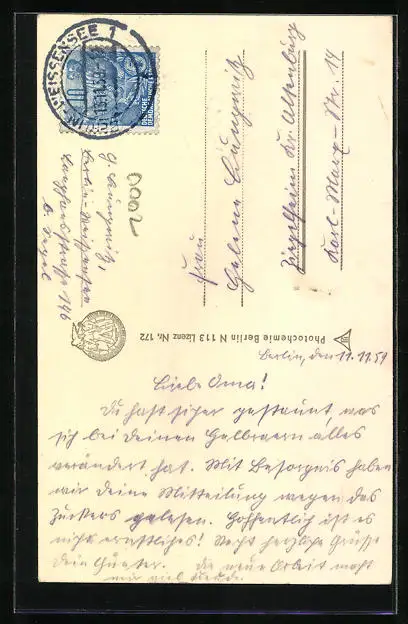 BERLIN WEISSENSEE 1
10
DEUTSCHE
Frau
Helene Küupnitz
Ziegelheim Kr. Altenburg
Karl-Marx-Str. 14
G.
Berlin-Weißensee
Langhansstraße 146
b. Segel
0002
Photochemie Berlin N 113 Lizenz Nr. 172
Berlin, den 11.11.59
Liebe Oma!
Du hast sicher gestaunt, was
sich bei Deinen Gelbraern alles
verändert hat. Mit Besorgnis haben
wir Deine Mitteilung wegen des
Zuckers gelesen. Hoffentlich ist es
nichts ernstliches! Recht herzliche Grüße
Dein Günter. Die neue Arbeit macht
mir viel Freude.